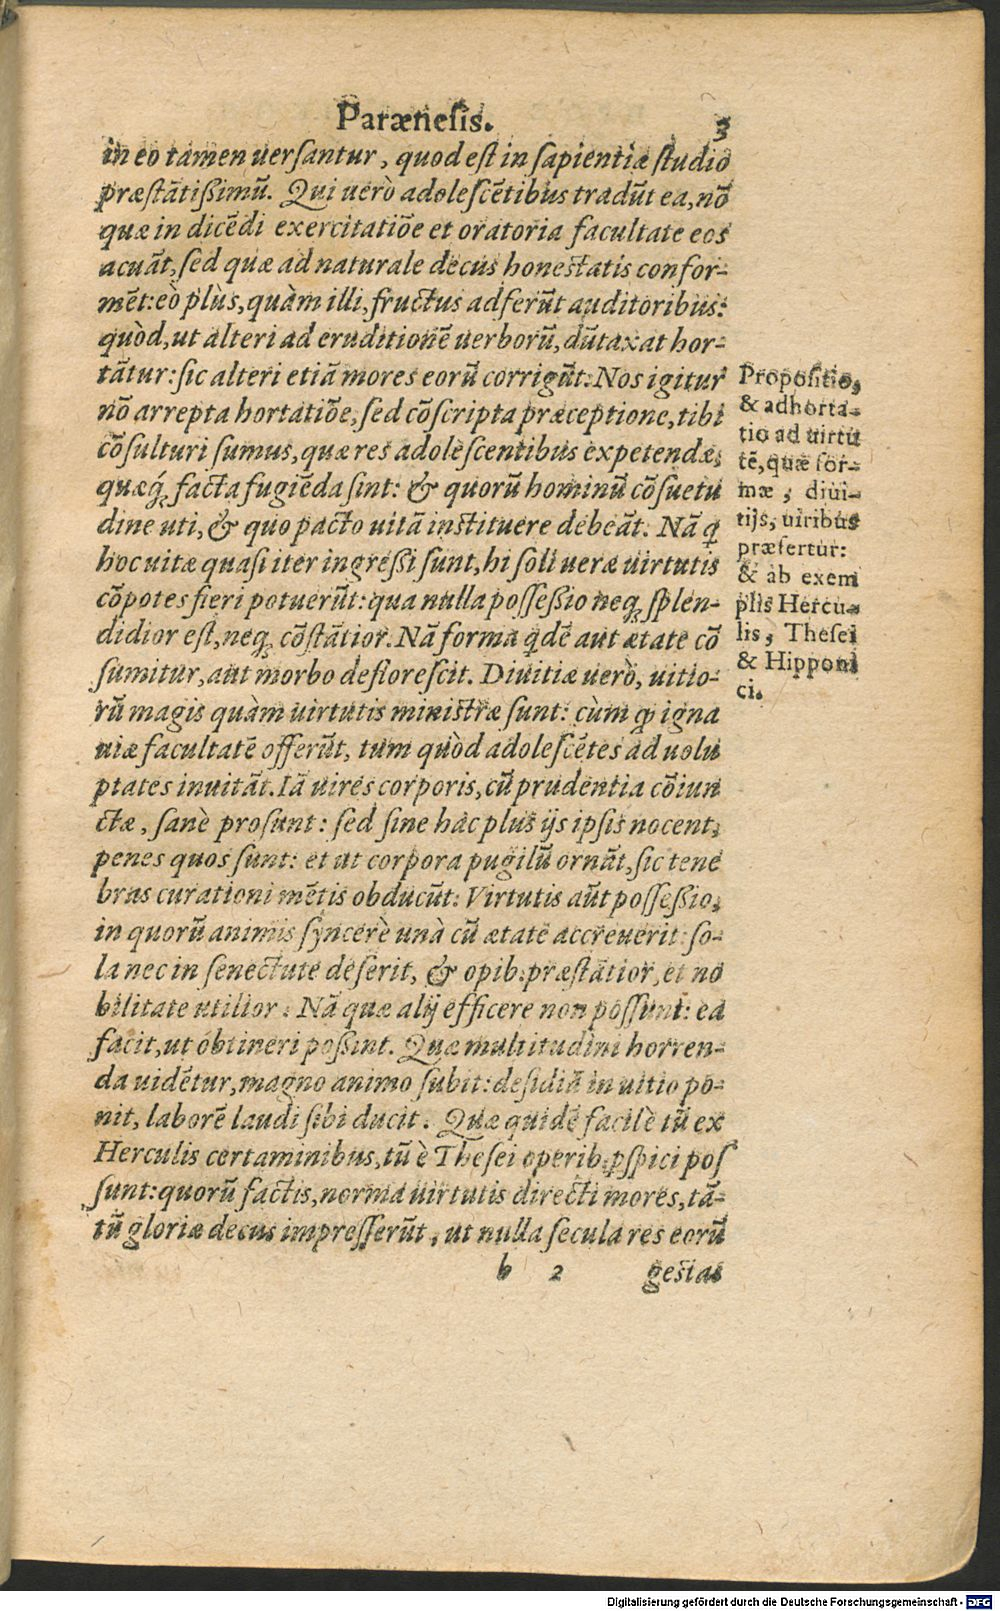 Parænesis. 3
in eo tamen uersantur, quod est in sapientiæ studio
præstātißimū. Qui uerò adolescētibus tradūt ea, nō
quæ in dicēdi exercitatiōe et oratoria facultate eos
acuāt, sed quæ ad naturale decus honestatis confor-
mēt: eò plùs, quàm illi, fructus adferūt auditoribus:
quòd, ut alteri ad eruditionē uerborū, dūtaxat hor-
tātur: sic alteri etiā mores eorū corrigūt. Nos igitur
nō arrepta hortatiōe, sed cōscripta præceptione, tibi
cōsulturi sumus, quæ res adolescentibus expetendæ,
quæq́ꝫ facta fugiēda sint: & quorū hominū cōsuetu
dine uti, & quo pacto uitā instituere debeāt. Nā q̄
hoc uitæ quasi iter ingreßi sunt, hi soli ueræ uirtutis
cōpotes fieri potuerūt: qua nulla possessio neqꝫ splen-
didior est, neqꝫ cōstātior. Nā forma q̄dē aut ætate cō
sumitur, aut morbo deflorescit. Diuitiæ uerò, uitio-
rū magis quàm uirtutis ministræ sunt: cùm ꝙ igna
uiæ facultatē offerūt, tum quòd adolescētes ad uolu
ptates inuitāt. Iā uires corporis, cū prudentia cōiun
ctæ, sanè prosunt: sed sine hac plus ijs ipsis nocent,
penes quos sunt: et ut corpora pugilū ornāt, sic tene
bras curationi mētis obducūt. Virtutis aūt possessio,
in quorū animis syncerè unà cū ætate accreuerit: so-
la nec in senectute deserit, & opib. præstātior, et no
bilitate utilior. Nā quæ alij efficere non possunt: ea
facit, ut óbtineri poßint. Quæ multitudini horren-
da uidētur, magno animo subit: desidiā in uitio po-
nit, laborē laudi sibi ducit. Quæ quidē facilè tū ex
Herculis certaminibus, tū è Thesei operib. ꝑspici pos
sunt: quorū factis, norma uirtutis directi mores, tā-
tū gloriæ decus impresserūt, ut nulla secula res eorū
b 2 gestas
Propositio,
& adhorta-
tio ad uirtu
tē, quæ for-
mæ, diui-
tijs, uiribus
præfertur:
& ab exem
plis Hercu-
lis, Thesei
& Hipponi
ci.
Digitalisierung gefördert durch die Deutsche Forschungsgemeinschaft - DFG